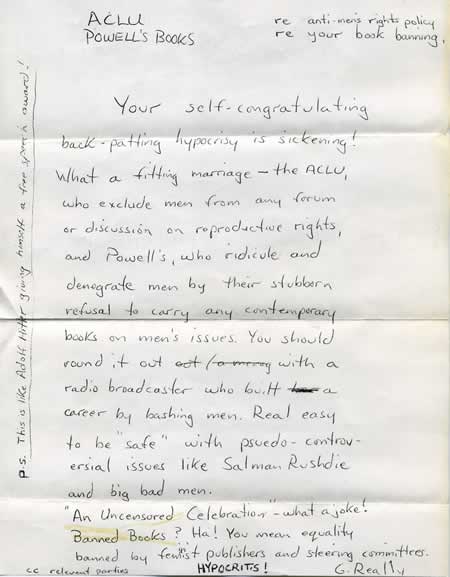 ACLU
POWELL'S BOOKS
re anti-men's rights policy
re your book banning.
Your self-congratulating
back-patting hypocrisy is sickening!
What a fitting marriage – the ACLU,
who exclude men from any forum
or discussion on reproductive rights,
and Powell's, who ridicule and
denegrate men by their stubborn
refusal to carry any contemporary
books on men's issues. You should
round it out with a
radio broadcaster who built a
career by bashing men. Real easy
to be "safe" with psuedo-controv-
ersial issues like Salman Rushdie
and big bad men.
"An Uncensored Celebration" – what a joke!
Banned Books? Ha! You mean equality
banned by feminist publishers and steering committees.
HYPOCRITS!
G. Really
cc relevant parties
P.S. This is like Adolf Hitler giving himself a free speech award!